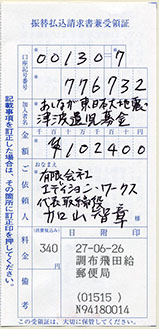 振替払込請求書兼受領証
口座記号番号
00130-7
776732
加入者名
あしなが東日本大地震
津波遺児募金
金額
千百十万千百十円
¥102400
ご依頼人
おなまえ
有限会社
エディション・ワークス
代表取締役
加山智章
料金
(消費税込み)
340
円
備考
日附印
27-06-26
調布飛田給
郵便局
(01515)
N94180014
記載事項を訂正した場合は、その箇所に訂正印を押してください。
この受領証は、大切に保管してください。